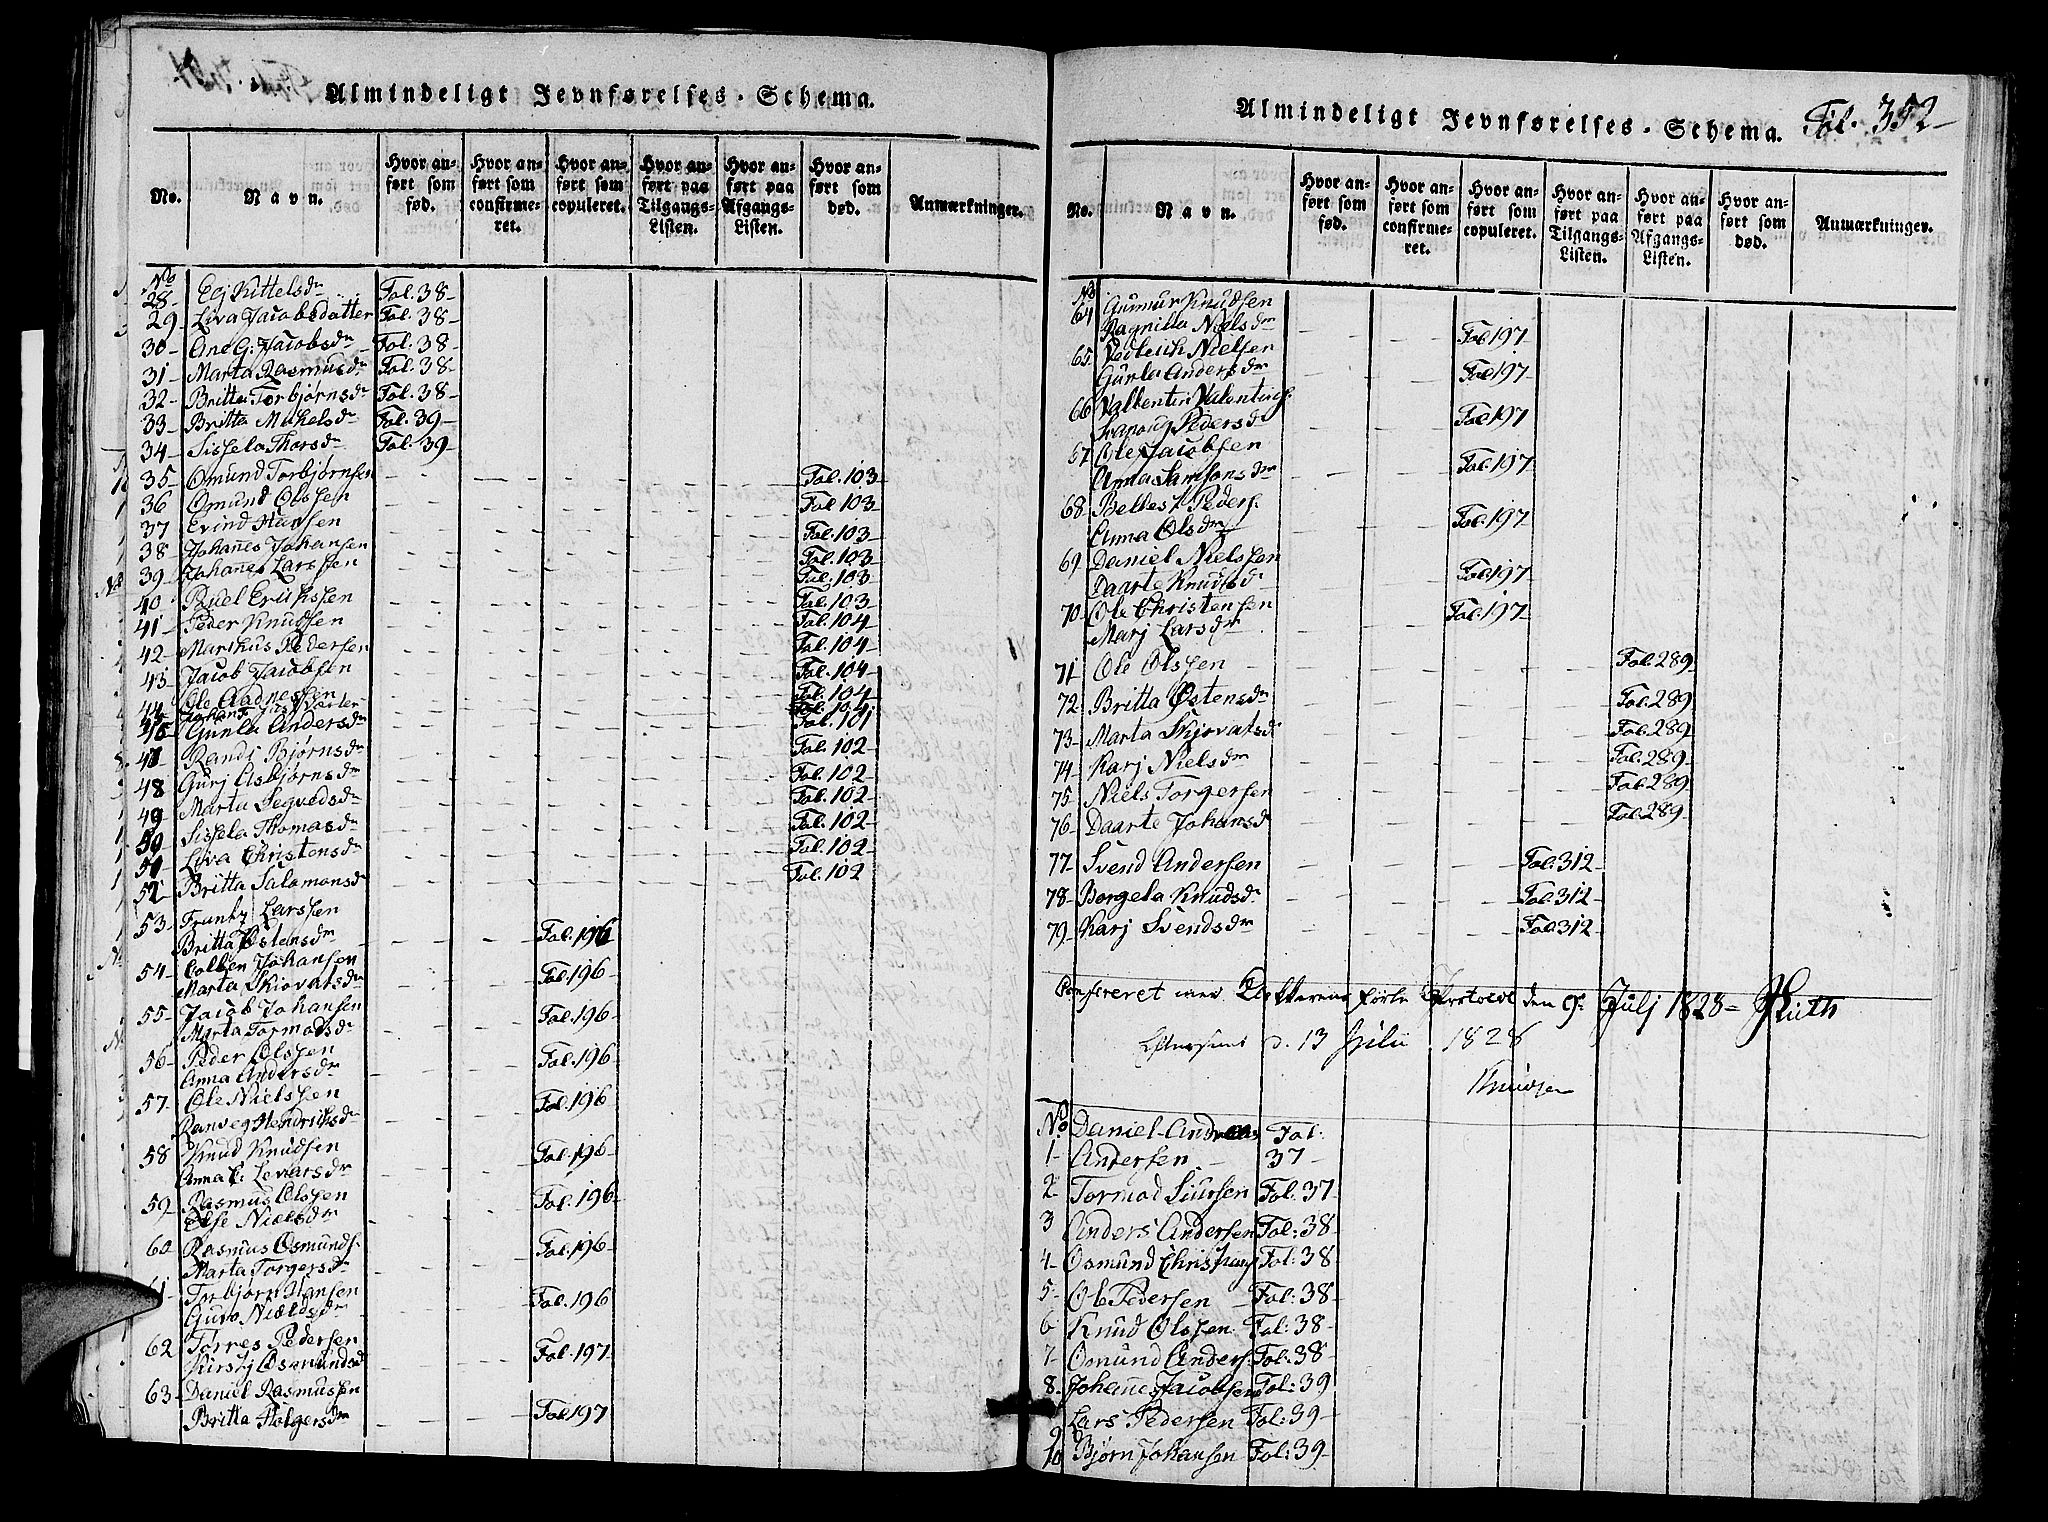 Almindeligt Jevnførelses-Schema.
No. Navn. Hvor anført som fød. Hvor anført som confirmeret. Hvor anført som copuleret. Hvor anført paa Tilgangs-Listen. Hvor anført paa Afgangs-Listen. Hvor anført som død. Anmærkninger.
No
28- Egj Kittelsdr Fol. 38-
29- Liva Jacobsdatter Fol. 38-
30- Ane G: Jacobsdr Fol. 38-
31- Marta Rasmusdr Fol. 38-
32- Britta Torbjørnsdr Fol. 38-
33- Britta Mikelsdr Fol. 39-
34- Sissela Thorsdr Fol. 39
35- Omund Torbjørnsen Fol. 103-
36 Omund Olssen Fol. 103
37 Evind Hansen Fol. 103-
38 Johanes Johansen Fol. 103
39- Johanes Larssen Fol. 103
40 Ruel Erikssen Fol. 103-
41- Peder Knudsen Fol. 104
42- Markus Pedersen Fol. 104-
43- Jacob Jacobsen Fol. 104
44- Ole Aadnessen Fol. 104-
45 Fol. 104
46 Gunla Andersdr Fol. 101
47 Randi Bjørnsdr Fol. 102-
48 Gurj Asbjørnsdr Fol. 102-
49 Marta Segvedsdr Fol. 102-
50 Sissela Thomasdr Fol. 102-
51 Liva Christensdr Fol. 102-
52 Britta Salamonsdr Fol. 102
53- Larssen
Britta Østensdr Fol. 196
54- Colben Johansen
Marta Skiovatsdr Fol. 196-
55- Jacob Johansen
Marta Tormodsdr Fol. 196-
56- Peder Olssen
Anna Andersdr Fol. 196
57- Ole Nielssen
Ranveg Hendriksdr Fol. 196
58 Knud Knudsen
Anna E. Levarsdr Fol. 196
59- Rasmus Olssen
Else Nielsdr Fol. 196-
60 Rasmus Osmunds.
Marta Torgersdr Fol. 196-
61- Torbjørn Hansen
Guro Nielsdr Fol. 196
62 Torres Pedersen
Kirstj Osmundsd Fol. 197
63- Daniel Rasmussen
Britta Holgersdr Fol. 197
Almindeligt Jevnførelses-Schema. Fol. 352-
No. Navn. Hvor anført som fød. Hvor anført som confirmeret. Hvor anført som copuleret. Hvor anført paa Tilgangs-Listen. Hvor anført paa Afgangs-Listen. Hvor anført som død. Anmærkninger.
No
64 Gunmur Knudsen
Ragnilla Nielsdr Fol. 197-
65 Nielsen
Gunla Andersdr Fol. 197
66 Vallentin Valentins:
Pedersdr Fol. 197
67 Ole Jacobsen
Anna Samsonsdr Fol. 197
68 Peders:
Anna Olsdr Fol. 197
69 Daniel Nielssen
Daarte Knudsdr Fol. 197-
70- Ole Christensen
Marj Larsdr Fol. 197-
71 Ole Olssen Fol. 289
72 Britta Østensdr Fol. 289
73- Marta Skjovatsdr Fol. 289
74- Karj Nielsdr Fol. 289-
75 Niels Torgersen Fol. 289
76- Daarte Johansd Fol. 289
77- Svend Andersen Fol. 312-
78- Borgela Knudsdr Fol. 312
79- Karj Svendsdr Fol. 312
Confereret med Klokkerens førte Protocol den 9. Julj 1828- Ruth
Efterseet d. 13 Julii 1828
Knudsen
No Daniel Andreas Fol:
1- Andersen 37-
2- Tormod Siursen Fol: 37-
3 Anders Andersen Fol: 38-
4- Osmund Fol: 38
5- Ole Pedersen Fol: 38-
6 Knud Olssen Fol: 38-
7- Omund Anders: Fol: 38-
8- Johanes Jacobsen Fol: 39
9 Lars Pedersen Fol: 39-
10 Bjørn Johansen Fol: 39-